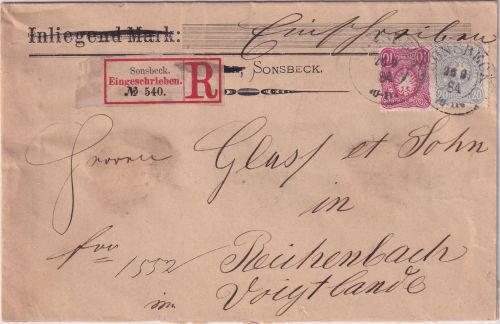 Inliegend Mark: Einschreiben
Sonsbeck.
Eingeschrieben.
№ 540.
R
SONSBECK.
SONSBECK
84
Herren Glass et Sohn
in
Reichenbach
im Voigtlande
1552